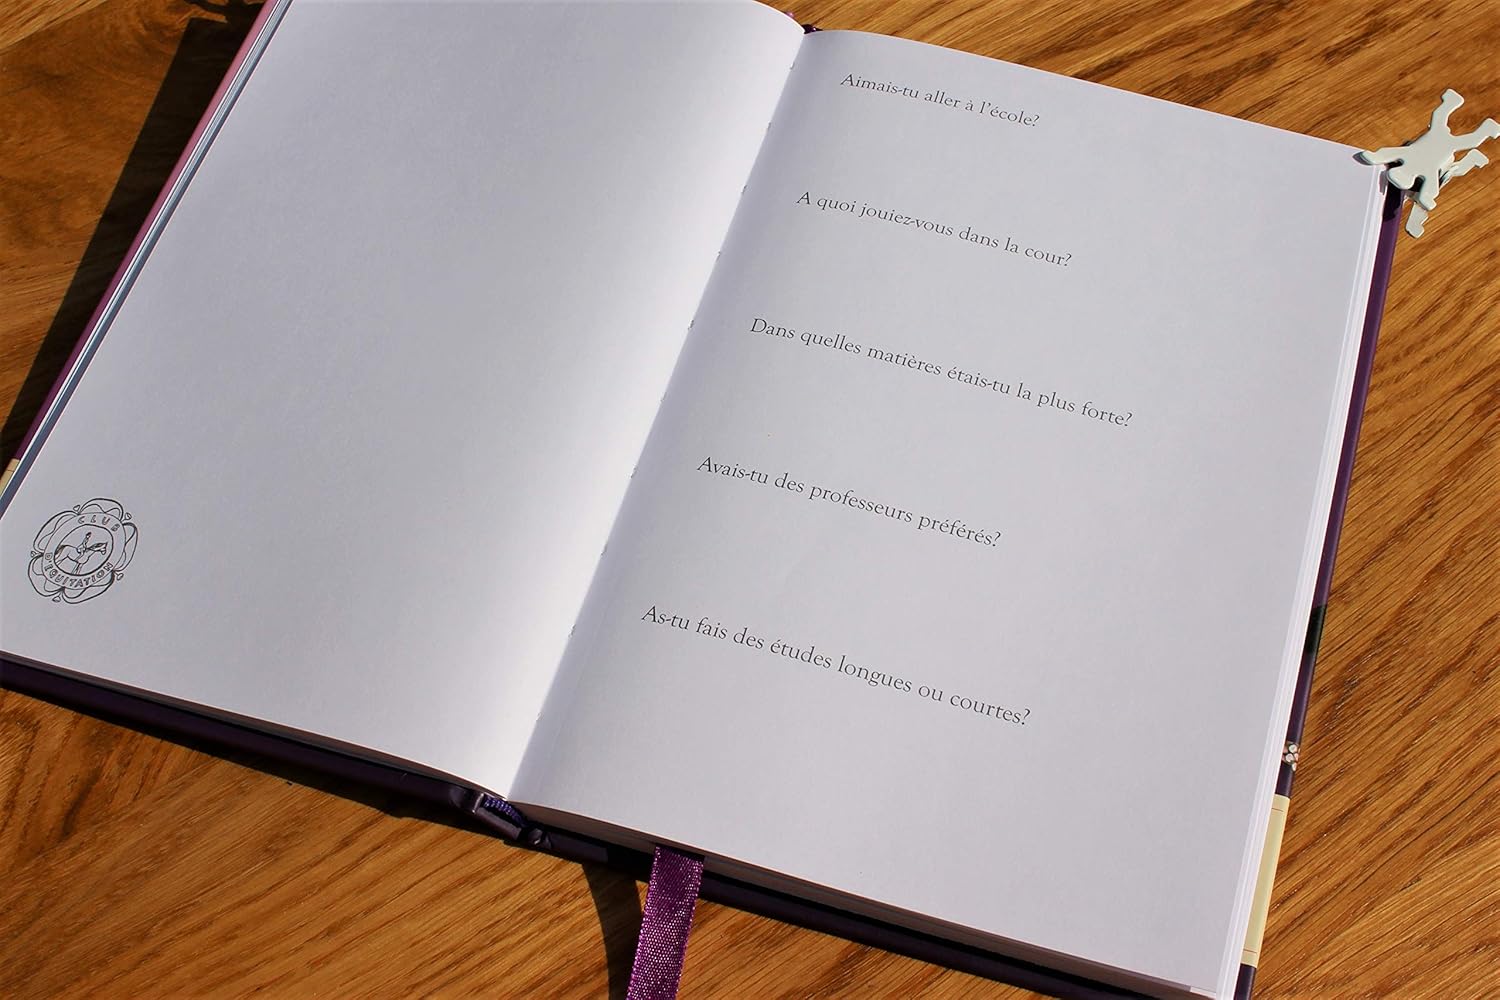 CLUB
D'EQUITATION
Aimais-tu aller à l'école?
A quoi jouiez-vous dans la cour?
Dans quelles matières étais-tu la plus forte?
Avais-tu des professeurs préférés?
As-tu fais des études longues ou courtes?